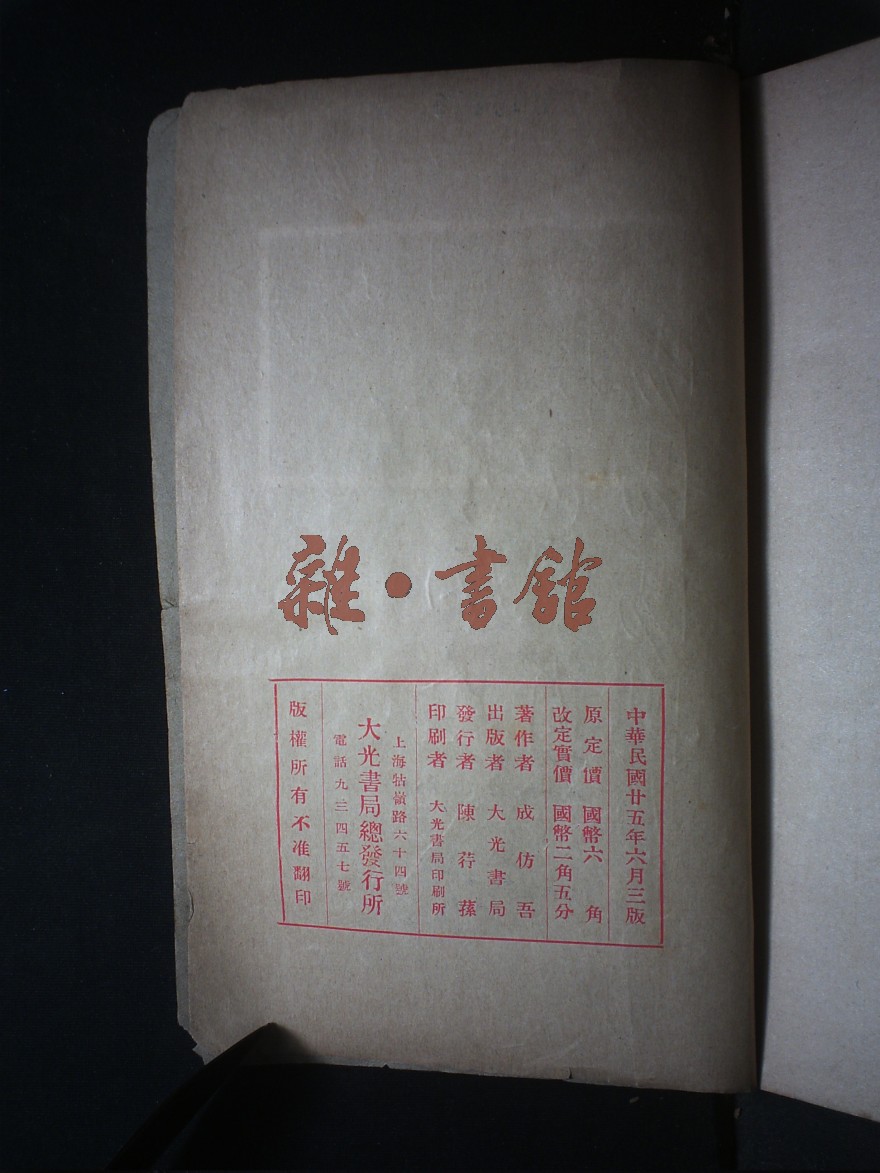 雜・書館
中華民國廿五年六月三版
原定價 國幣六角
改定實價 國幣二角五分
著作者 成仿吾
出版者 大光書局
發行者 陳荇蓀
印刷者 大光書局印刷所
上海牯嶺路六十四號
大光書局總發行所
電話九三四五七號
版權所有不准翻印